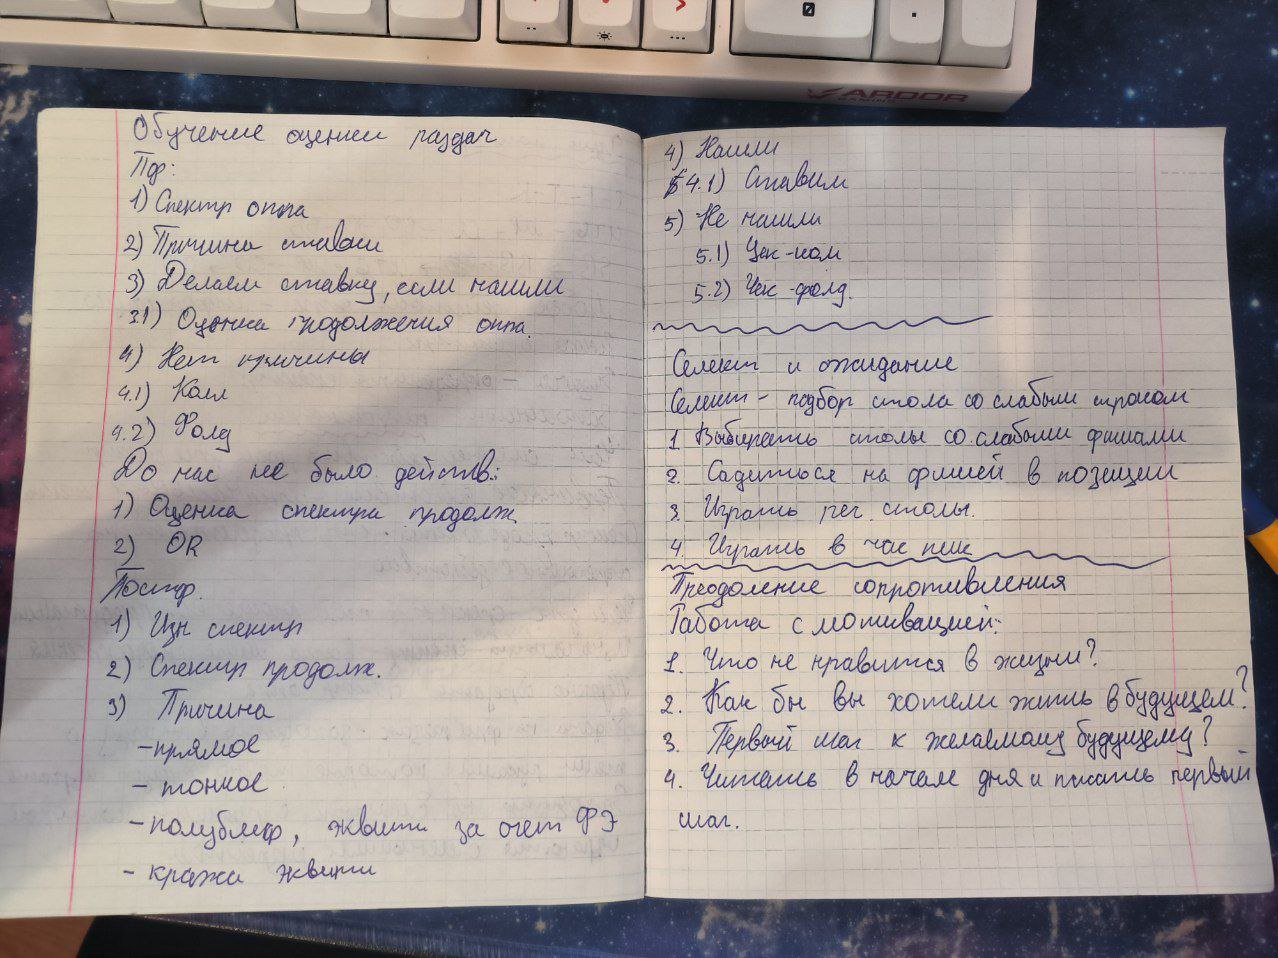 0
.
ARDOR
GAMING
Обучение оценки раздач
Пф:
1) Спектр оппа
2) Причина ставки
3) Делаем ставку, если нашли
3.1) Оценка продолжения оппа
4) Нет причины
4.1) Колл
4.2) Фолд
До нас не было действ.:
1) Оценка спектра продолж.
2) OR
Постф.
1) Изн спектр
2) Спектр продолж.
3) Причина
- прямое
- тонкое
- полублеф, эквити за счет ФЭ
- кража эквити
4) Нашли
4.1) Ставим
5) Не нашли
5.1) Чек-колл
5.2) Чек-фолд.
Селект и ожидание
Селект - подбор стола со слабым игроком
1. Выбирать столы со слабыми фишами
2. Садиться на фишей в позиции
3. Играть рег. столы.
4. Играть в час пик
Преодоление сопротивления
Работа с мотивацией:
1. Что не нравится в жизни?
2. Как бы вы хотели жить в будущем?
3. Первый шаг к желаемому будущему?
4. Читать в начале дня и писать первый
шаг.